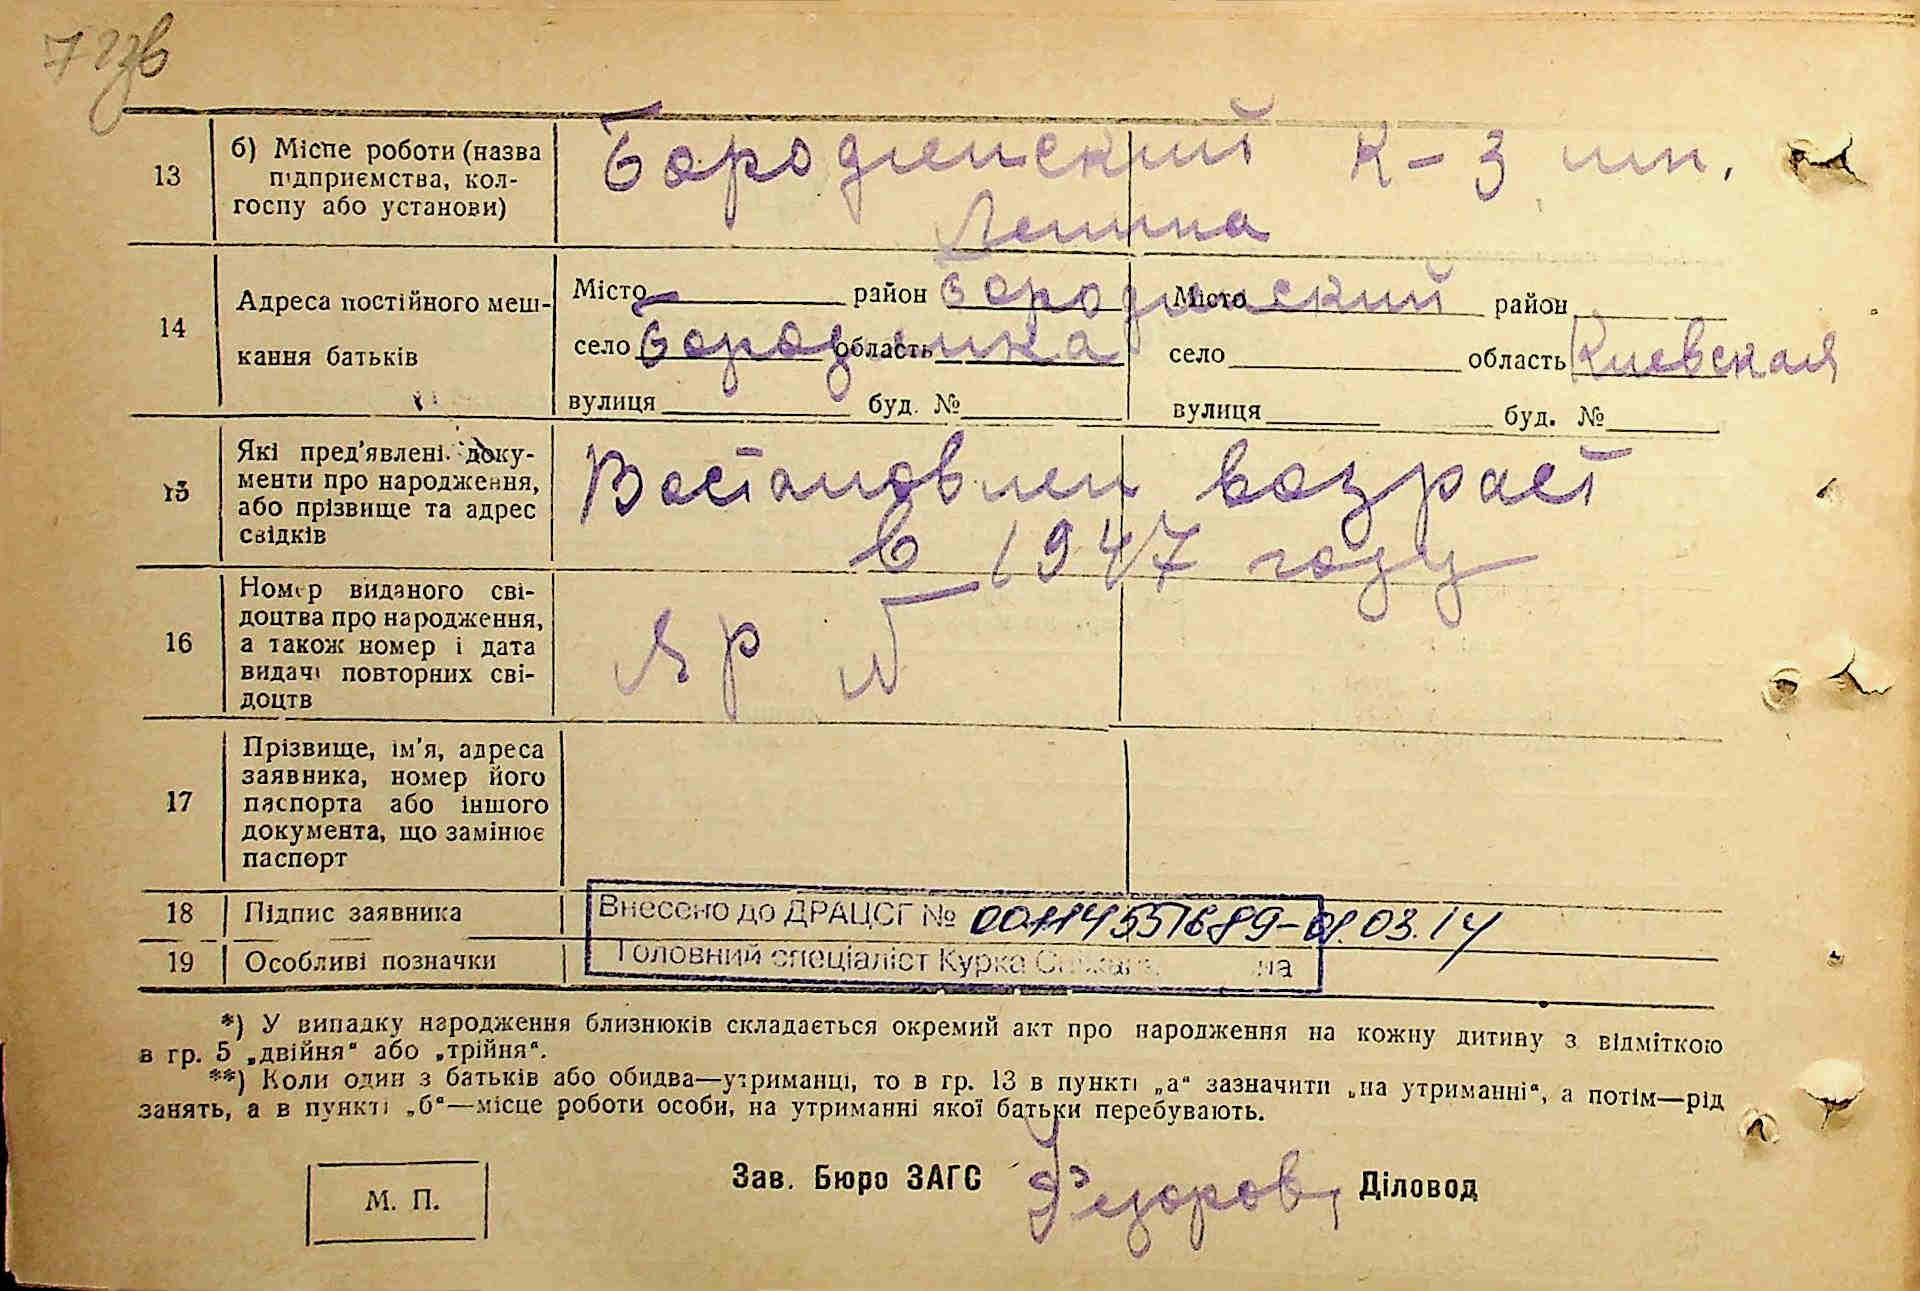 7 зв
13
б) Місце роботи (назва
підприємства, кол-
госпу або установи)
Бородянский К-З им.
Ленина
14
Адреса постійного меш-
кання батьків
Місто район Бородянский
село Бородянка область
вулиця буд. №
Місто район
село область Киевская
вулиця буд. №
15
Які пред'явлені доку-
менти про народження,
або прізвище та адрес
свідків
Востановлен возраст
в 1947 году
16
Номер виданого сві-
доцтва про народження,
а також номер і дата
видачі повторних сві-
доцтв
ЯР
17
Прізвище, ім'я, адреса
заявника, номер його
паспорта або іншого
документа, що замінює
паспорт
18 Підпис заявника
Внесено до ДРАЦСГ № 00114551689-01.03.14
19 Особливі позначки
Головний спеціаліст Курка
*) У випадку народження близнюків складається окремий акт про народження на кожну дитину з відміткою
в гр. 5 „двійня“ або „трійня“.
**) Коли один з батьків або обидва—утриманці, то в гр. 13 в пункті „а“ зазначити „на утриманні“, а потім—рід
занять, а в пункті „б“—місце роботи особи, на утриманні якої батьки перебувають.
М. П.
Зав. Бюро ЗАГС Федоров, Діловод